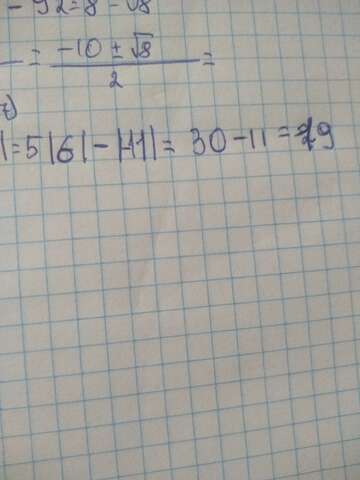 - 92 = 8 - √8
= (-10 ± √8) / 2 =
= 5|6| - |-11| = 30 - 11 = 19